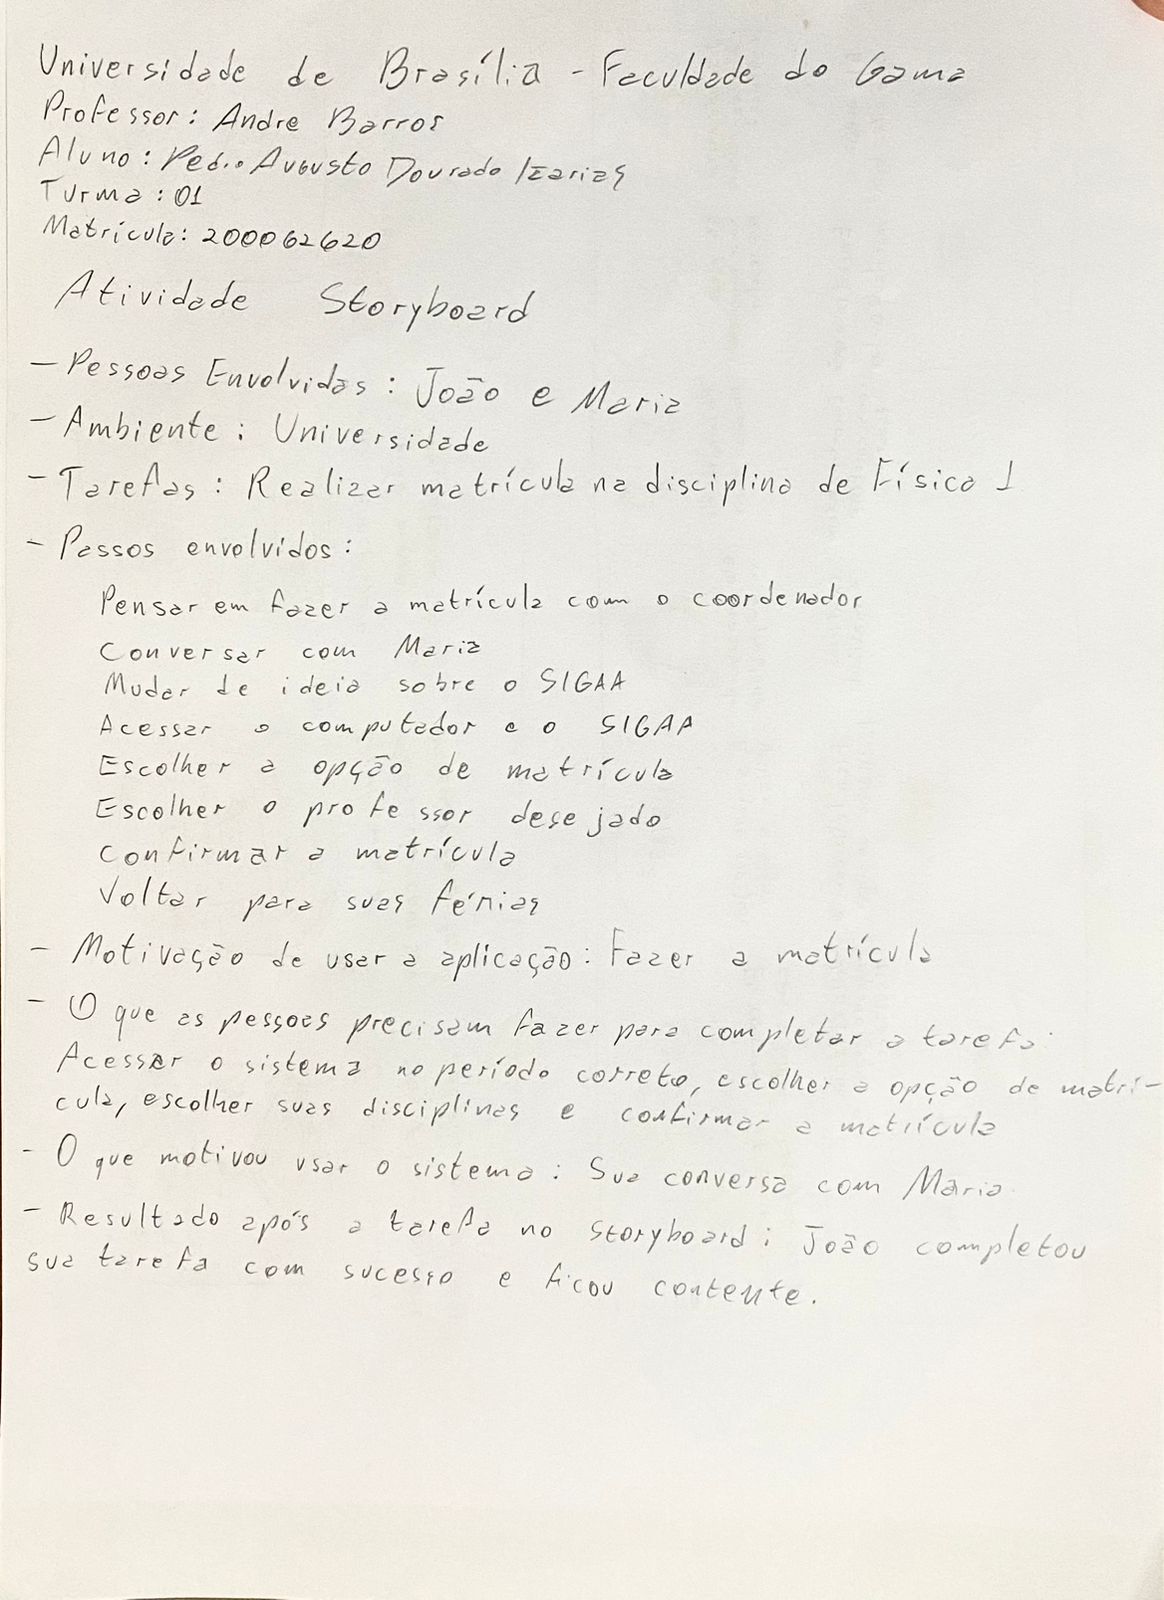 Universidade de Brasília - Faculdade do Gama
Professor: Andre Barros
Aluno: Pedro Augusto Dourado Izarias
Turma: 01
Matrícula: 200062620
Atividade Storyboard
- Pessoas Envolvidas: João e Maria
- Ambiente: Universidade
- Tarefas: Realizar matrícula na disciplina de Física 1
- Passos envolvidos:
Pensar em fazer a matrícula com o coordenador
Conversar com Maria
Mudar de ideia sobre o SIGAA
Acessar o computador e o SIGAA
Escolher a opção de matrícula
Escolher o professor desejado
Confirmar a matrícula
Voltar para suas férias
- Motivação de usar a aplicação: Fazer a matrícula
- O que as pessoas precisam fazer para completar a tarefa:
Acessar o sistema no período correto, escolher a opção de matrí-
cula, escolher suas disciplinas e confirmar a matrícula
- O que motivou usar o sistema: Sua conversa com Maria.
- Resultado após a tarefa no storyboard: João completou
sua tarefa com sucesso e ficou contente.